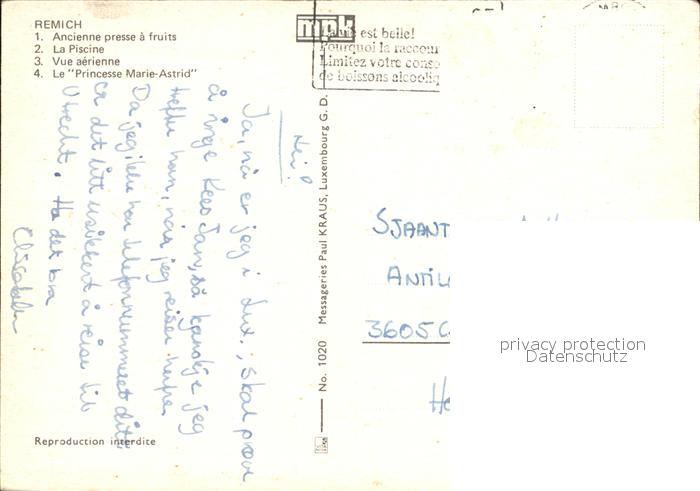 REMICH
1. Ancienne presse à fruits
2. La Piscine
3. Vue aérienne
4. Le "Princesse Marie-Astrid"
mpk
est belle!
Pourquoi la raccour
Limitez votre conso
de boissons alcooliq
Hei!
Ja, nå er jeg i Lux., skal prøve
å ringe Kees Jan, så kanskje jeg
treffer han, når jeg reiser
Da jeg ikke har telefonnummeret ditt
er det litt usikkert å reise til
Utrecht. Ha det bra
Elisabeth
No. 1020 Messageries Paul KRAUS, Luxembourg G. D.
SJAANT
ANTIL
3605
He
privacy protection
Datenschutz
Reproduction interdite